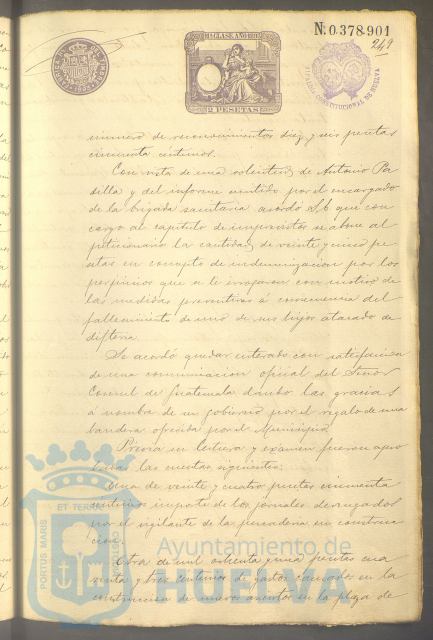 N.0.378.901
249
11ª CLASE AÑO 1893
2 PESETAS
número de reconocimientos diez y seis pesetas
cincuenta centimos.
Con vista de una solicitud de Antonio Pa
dilla y del informe emitido por el encargado
de la brigada sanitaria acordó S.E. que con
cargo al capitulo de imprevistos se abone al
peticionario la cantidad de veinte y cinco pe
setas en concepto de indemnizacion por los
perjuicios que se le irrogaron con motivo de
las medidas preventivas á consecuencia del
fallecimiento de uno de sus hijos atacado de
difteria.
Se acordó quedar enterado con satisfaccion
de una comunicacion oficial del Señor
Consul de Guatemala dando las gracias
á nombre de su gobierno por el regalo de una
bandera ofrecida por el Municipio
Previa su lectura y examen fueron apro
badas las cuentas siguientes:
Una de veinte y cuatro pesetas cincuenta
centimos importe de los jornales devengados
por el vigilante de la pescaderia en construc
cion.
Otra de mil ochenta y una pesetas cua
renta y tres centimos de gastos causados en la
construccion de nuevos asientos en la plaza de
Ayuntamiento de
HUELVA
PORTUS MARIS
ET TERRAE
CUSTODIA